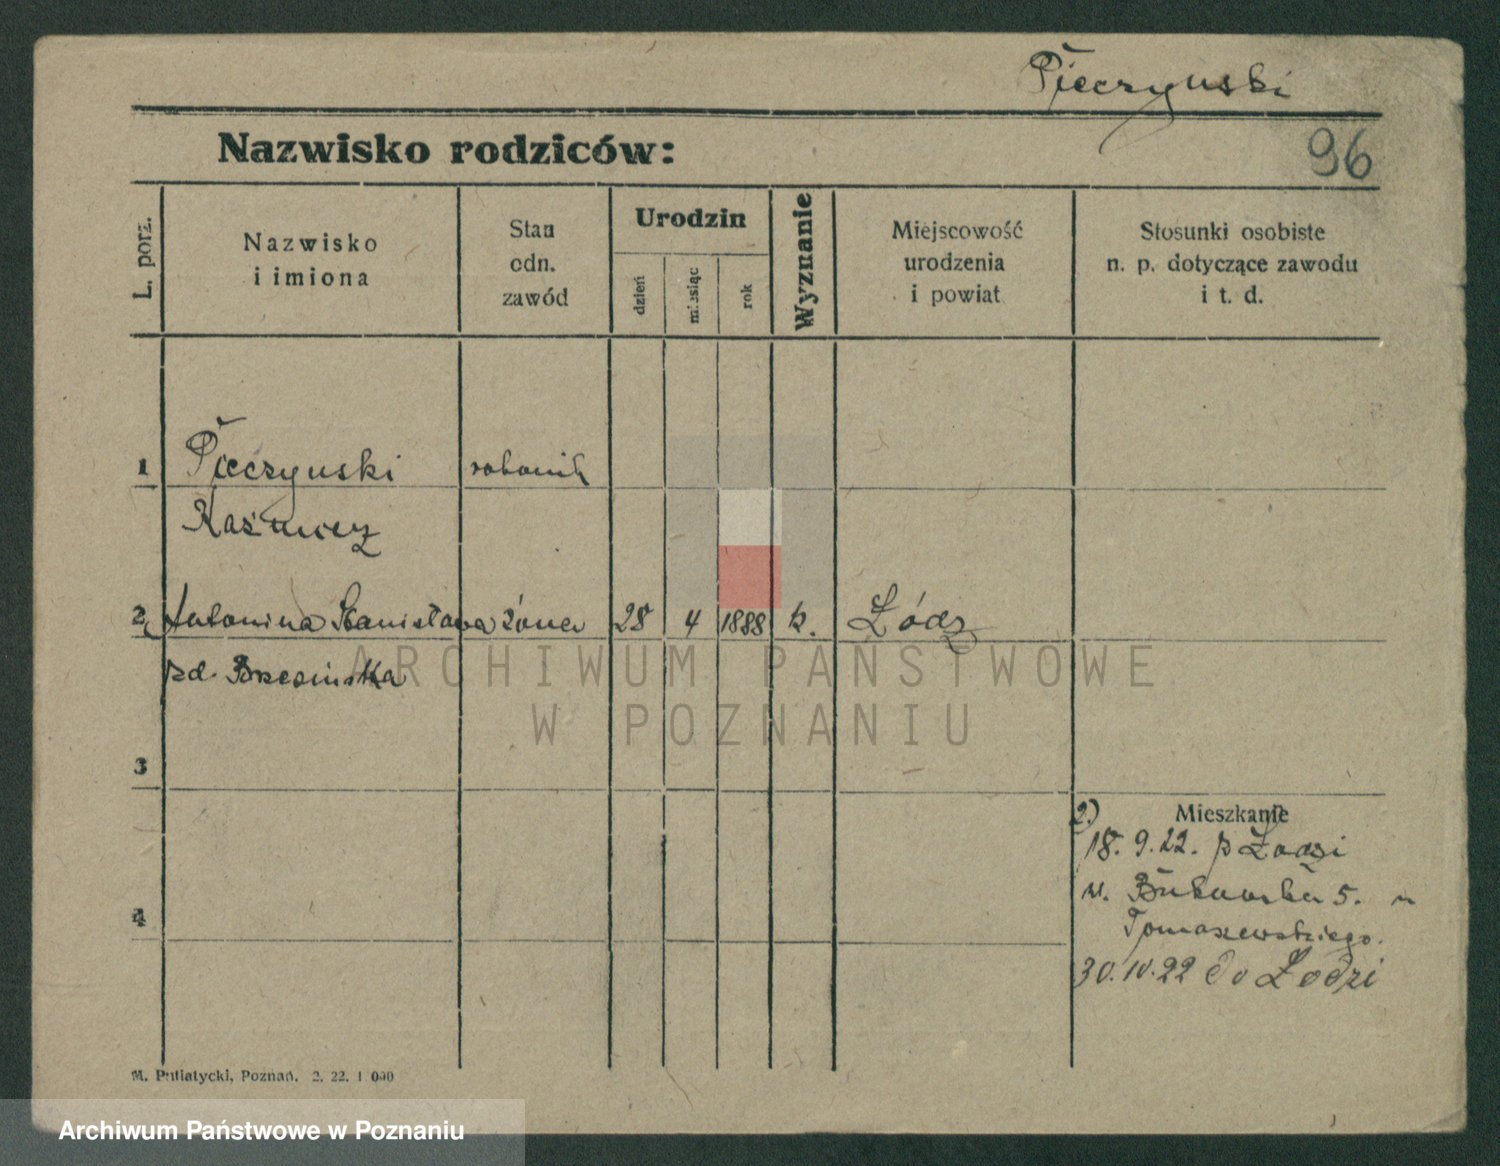 Pieczynski
96
Nazwisko rodziców:
L. porz.
Nazwisko
i imiona
Stan
odn.
zawód
Urodzin
dzień
miesiąc
rok
Wyznanie
Miejscowość
urodzenia
i powiat
Stosunki osobiste
n. p. dotyczące zawodu
i t. d.
1 Pieczynski robotnik
Kaźmierz
2 Antonina Stanisława żona 28 4 1888 k. Łódz
zd. Brzesinska
ARCHIWUM PAŃSTWOWE
W POZNANIU
3
Mieszkanie
2)
18. 9. 22. z Łodzi
u. Bukowska 5. u
Tomaszewskiego.
4
30.10.22 do Łodzi
M. Putiatycki, Poznań. 2. 22. 1 000
Archiwum Państwowe w Poznaniu